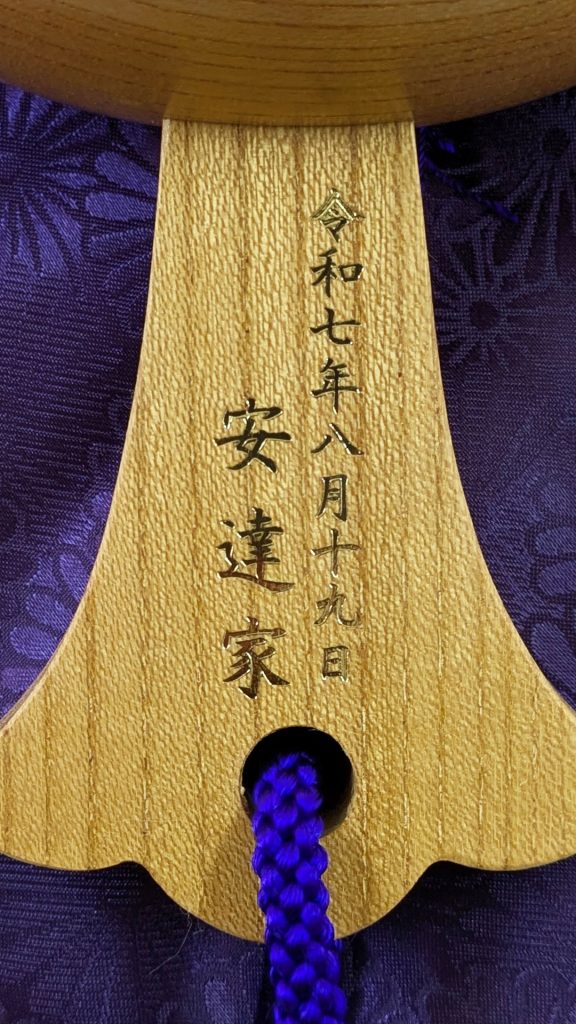 令和七年八月十九日
安達家